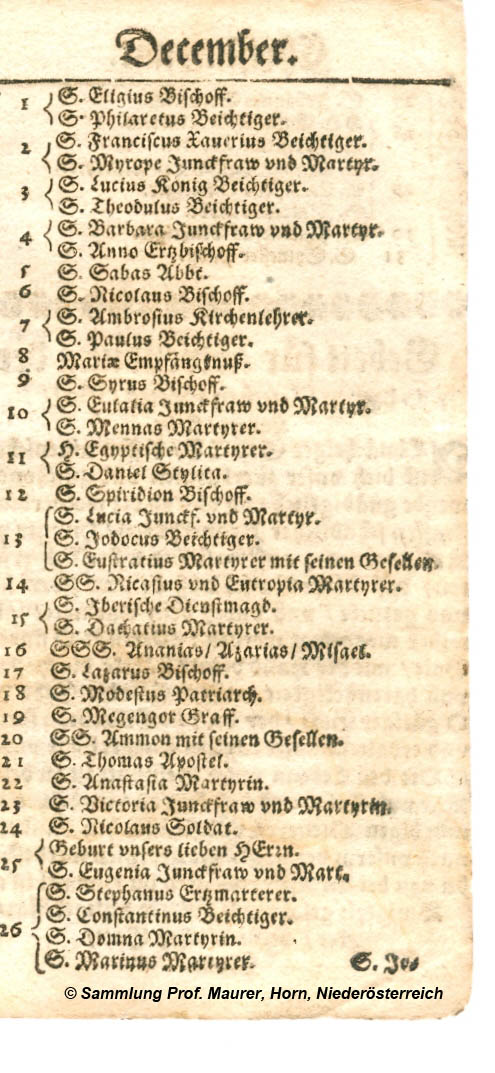 December.
1 S. Eligius Bischoff.
S. Philaretus Beichtiger.
2 S. Franciscus Xauerius Beichtiger.
S. Myrope Junckfraw vnd Martyr.
3 S. Lucius König Beichtiger.
S. Theodulus Beichtiger.
4 S. Barbara Junckfraw vnd Martyr.
S. Anno Ertzbischoff.
5 S. Sabas Abbt.
6 S. Nicolaus Bischoff.
7 S. Ambrosius Kirchenlehrer.
S. Paulus Beichtiger.
8 Mariæ Empfängnuß.
9 S. Syrus Bischoff.
10 S. Eulalia Junckfraw vnd Martyr.
S. Mennas Martyrer.
11 H. Egyptische Martyrer.
S. Daniel Stylita.
12 S. Spiridion Bischoff.
13 S. Lucia Junckf. vnd Martyr.
S. Jodocus Beichtiger.
S. Eustratius Martyrer mit seinen Gesellen.
14 SS. Nicasius vnd Eutropia Martyrer.
15 S. Iberische Dienstmagd.
S. Martyrer.
16 SSS. Ananias/ Azarias/ Misael.
17 S. Lazarus Bischoff.
18 S. Modestus Patriarch.
19 S. Megengor Graff.
20 SS. Ammon mit seinen Gesellen.
21 S. Thomas Apostel.
22 S. Anastasia Martyrin.
23 S. Victoria Junckfraw vnd Martyrin.
24 S. Nicolaus Soldat.
25 Geburt vnsers lieben HErrn.
S. Eugenia Junckfraw vnd Mart.
26 S. Stephanus Ertzmarterer.
S. Constantinus Beichtiger.
S. Domna Martyrin.
S. Marinus Martyrer.
S. Jo-
© Sammlung Prof. Maurer, Horn, Niederösterreich